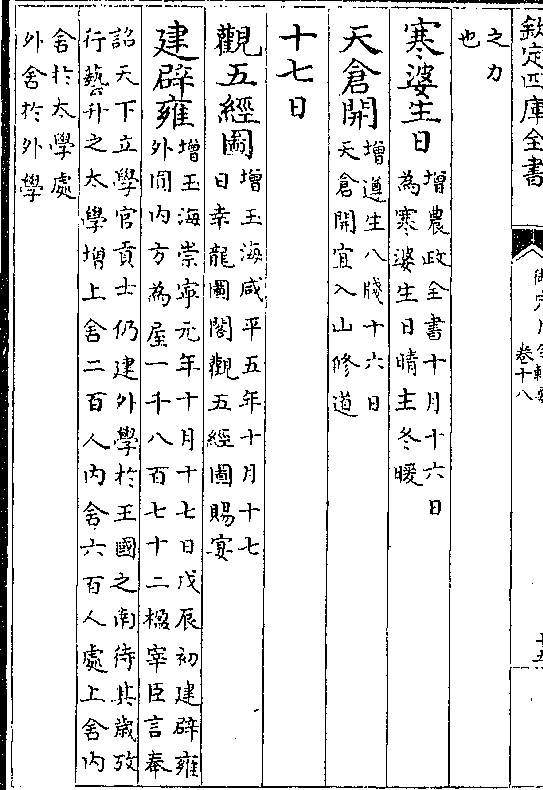 欽定四庫全書
卷十八
之力
也
寒婆生日增農政全書十月十六日
為寒婆生日晴主冬暖
天倉開增遵生八牋十六日
天倉開宜入山修道
十七日
觀五經圖增玉海咸平五年十月十七
日幸龍圖閣觀五經圖賜宴
建辟雍增玉海崇寧元年十月十七日戊辰初建辟雍
外圓内方為屋一千八百七十二楹宰臣言奉
詔天下立學官貢士仍建外學於王國之南待其歲攷
行藝升之太學增上舍二百人内舍六百人處上舍内
舍於太學處
外舍於外學